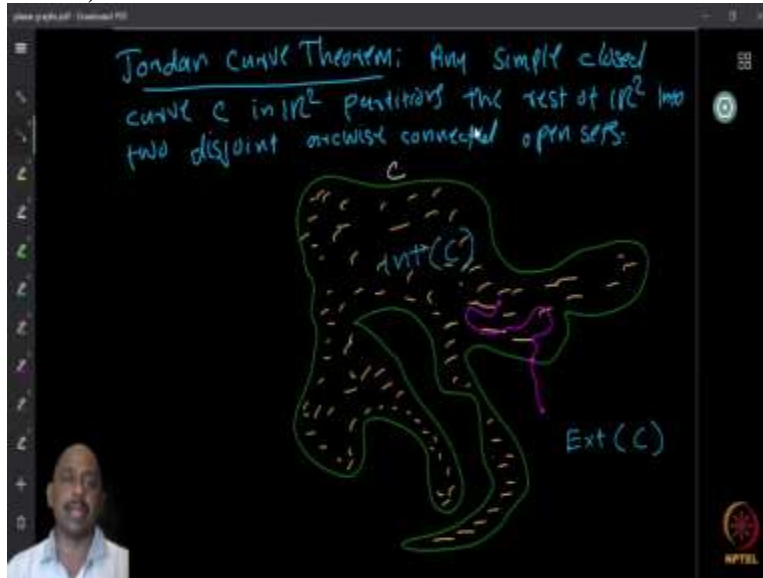 Jordan Curve Theorem: Any simple closed
curve C in IR² partitions the rest of IR² into
two disjoint arcwise connected open sets.
C
int(C)
Ext(C)
NPTEL